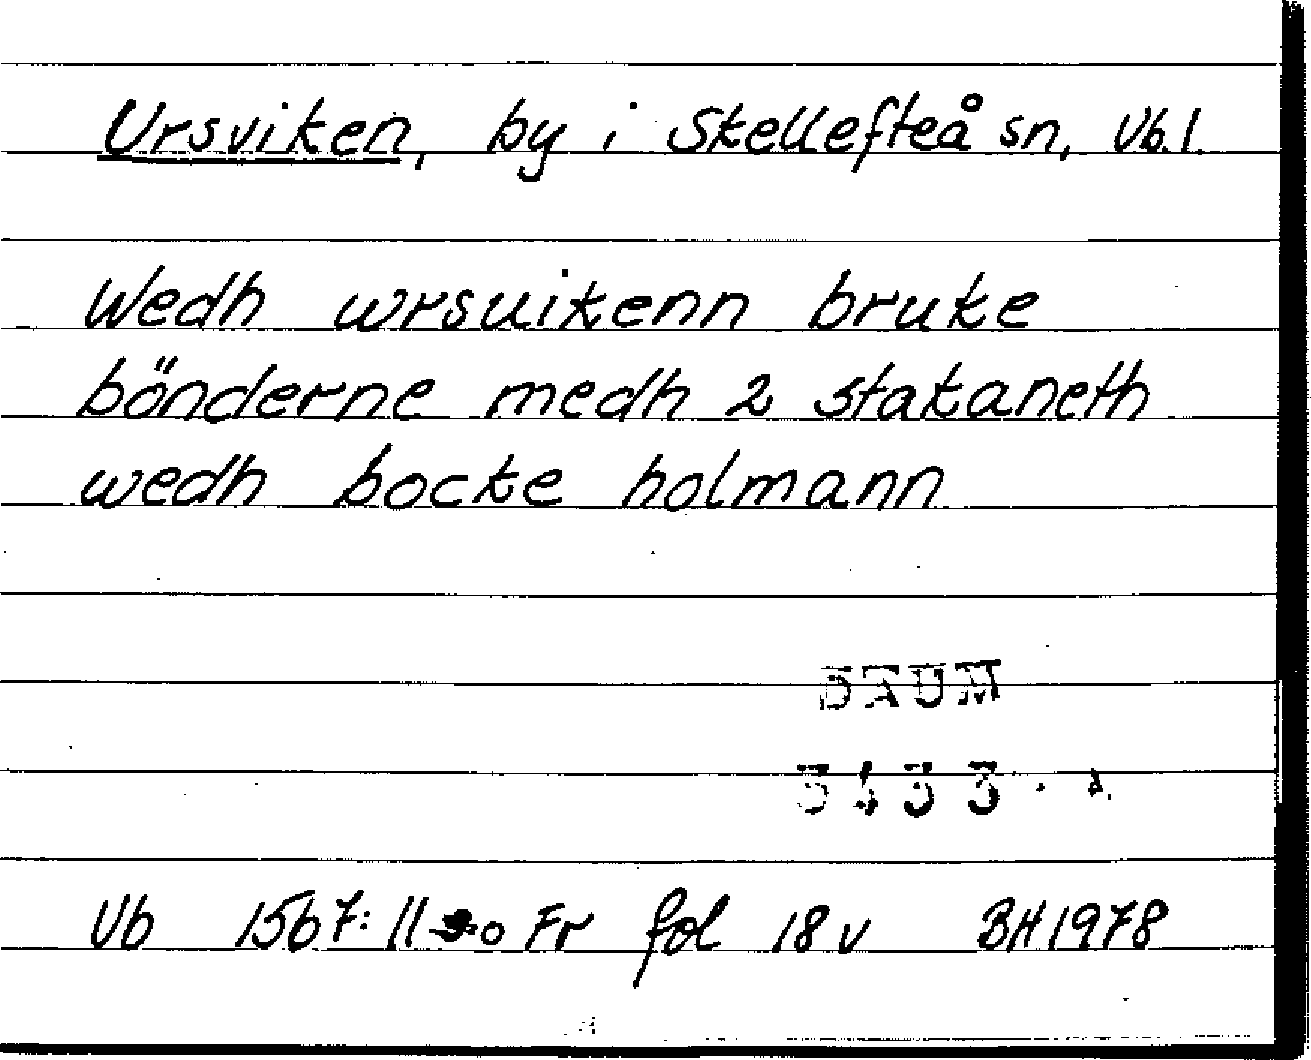 Ursviken, by i Skellefteå sn, Vb. l.
Wedh wrsuikenn bruke
bönderne medh 2 stakaneth
wedh bocke holmann
DAUM
Vb 1567: 11 Fr fol 18 v BH 1978